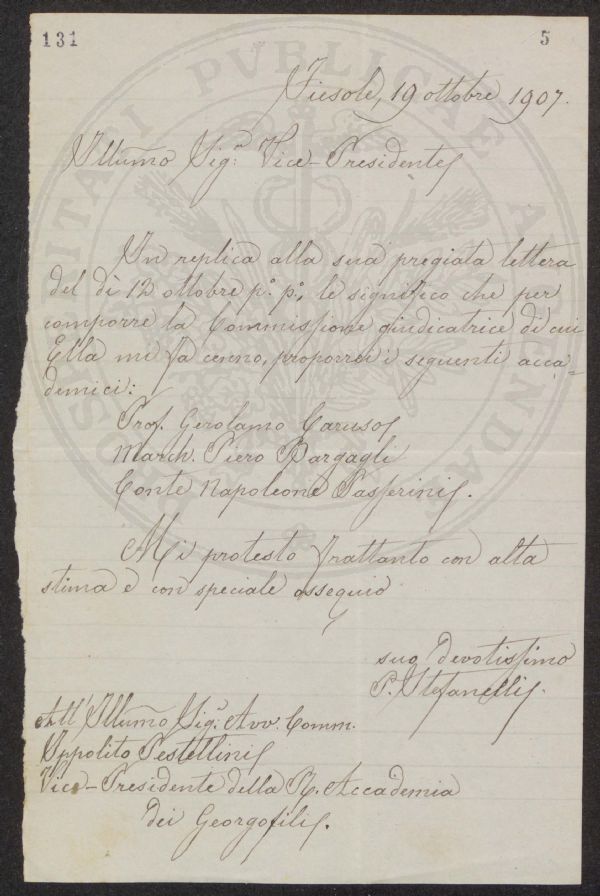 131 5
Fiesole, 19 ottobre 1907.
Illumo Sigr: Vice-Presidente
In replica alla sua pregiata lettera
del dì 12 ottobre p.º p.º, le significo che per
comporre la Commissione giudicatrice di cui
Ella mi fa cenno, proporrei i seguenti acca=
demici:
Prof. Gerolamo Caruso
March. Piero Bargagli
Conte Napoleone Passerini.
Mi protesto frattanto con alta
stima e con speciale ossequio
suo devotissimo
P. Stefanelli.
All' Illumo Sigr: Avv. Comm.
Ippolito Pestellini
Vice-Presidente della R. Accademia
dei Georgofili.